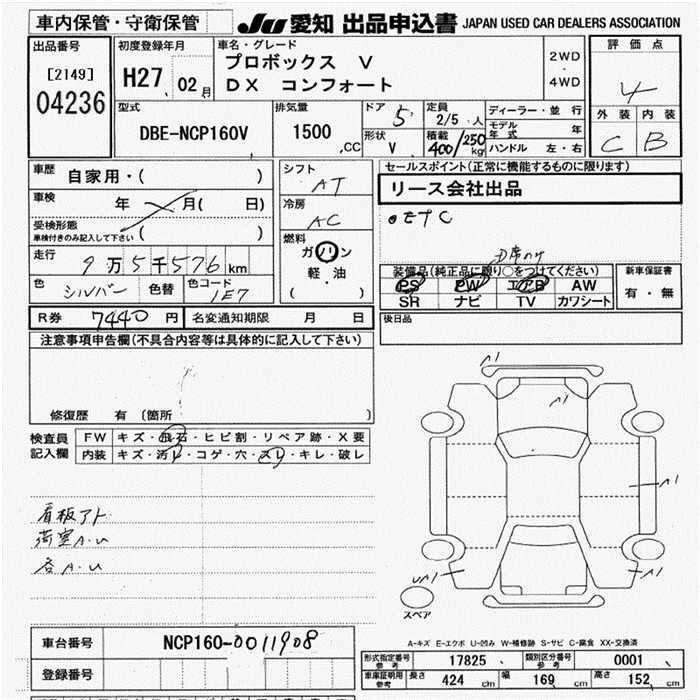 車内保管・守衛保管
JU 愛知 出品申込書 JAPAN USED CAR DEALERS ASSOCIATION
出品番号
[2149]
04236
初度登録年月
H27. 02 月
車名・グレード
プロボックス V
DX コンフォート
2WD
・
4WD
評価点
4
外装 内装
C B
型式
DBE-NCP160V
排気量
1500 .CC
ドア 5
形状 V
定員 2/5 人
積載 400/250 kg
ディーラー・並行
モデル年式 年
ハンドル 左・右
車歴 自家用・( )
車検 年 月( 日)
受検形態
車検付きのみ記入して下さい ( )
走行 9万5千576 km
色 シルバー 色替 色コード 1E7
シフト AT
冷房 AC
燃料
ガソリン
・
軽油
( )
セールスポイント(正常に機能するものに限ります)
リース会社出品
●ETC
装備品(純正品に限り○をつけてください)
PS PW エアB AW
SR ナビ TV カワシート
新車保証書
有・無
R券 7440 円 名変通知期限 月 日
後日品
注意事項申告欄(不具合内容等は具体的に記入して下さい)
修復歴 有〔箇所 〕
検査員記入欄
FW キズ・飛石・ヒビ割・リペア跡・X要
内装 キズ・汚レ・コゲ・穴・スレ・キレ・破レ
看板アト
荷室A.U
各A.U
スペア
A-キズ E-エクボ U-凹み W-補修跡 S-サビ C-腐食 XX-交換済
車台番号 NCP160-0011908
登録番号
形式指定番号 参考 17825 類別区分番号 参考 0001
車庫証明用 参考 長さ 424 cm 幅 169 cm 高さ 152 cm